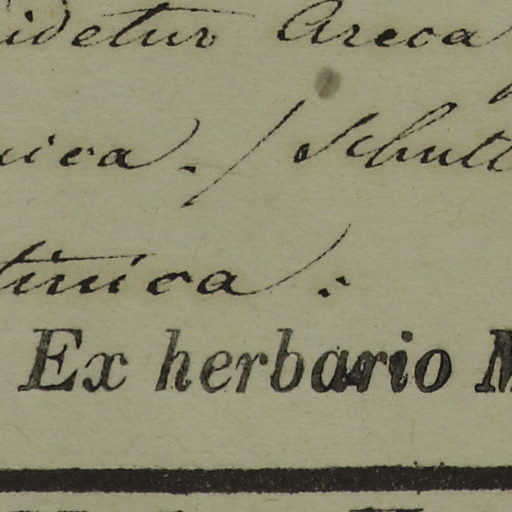 idetur Areca
nica. / Schult
tinica.
Ex herbario M